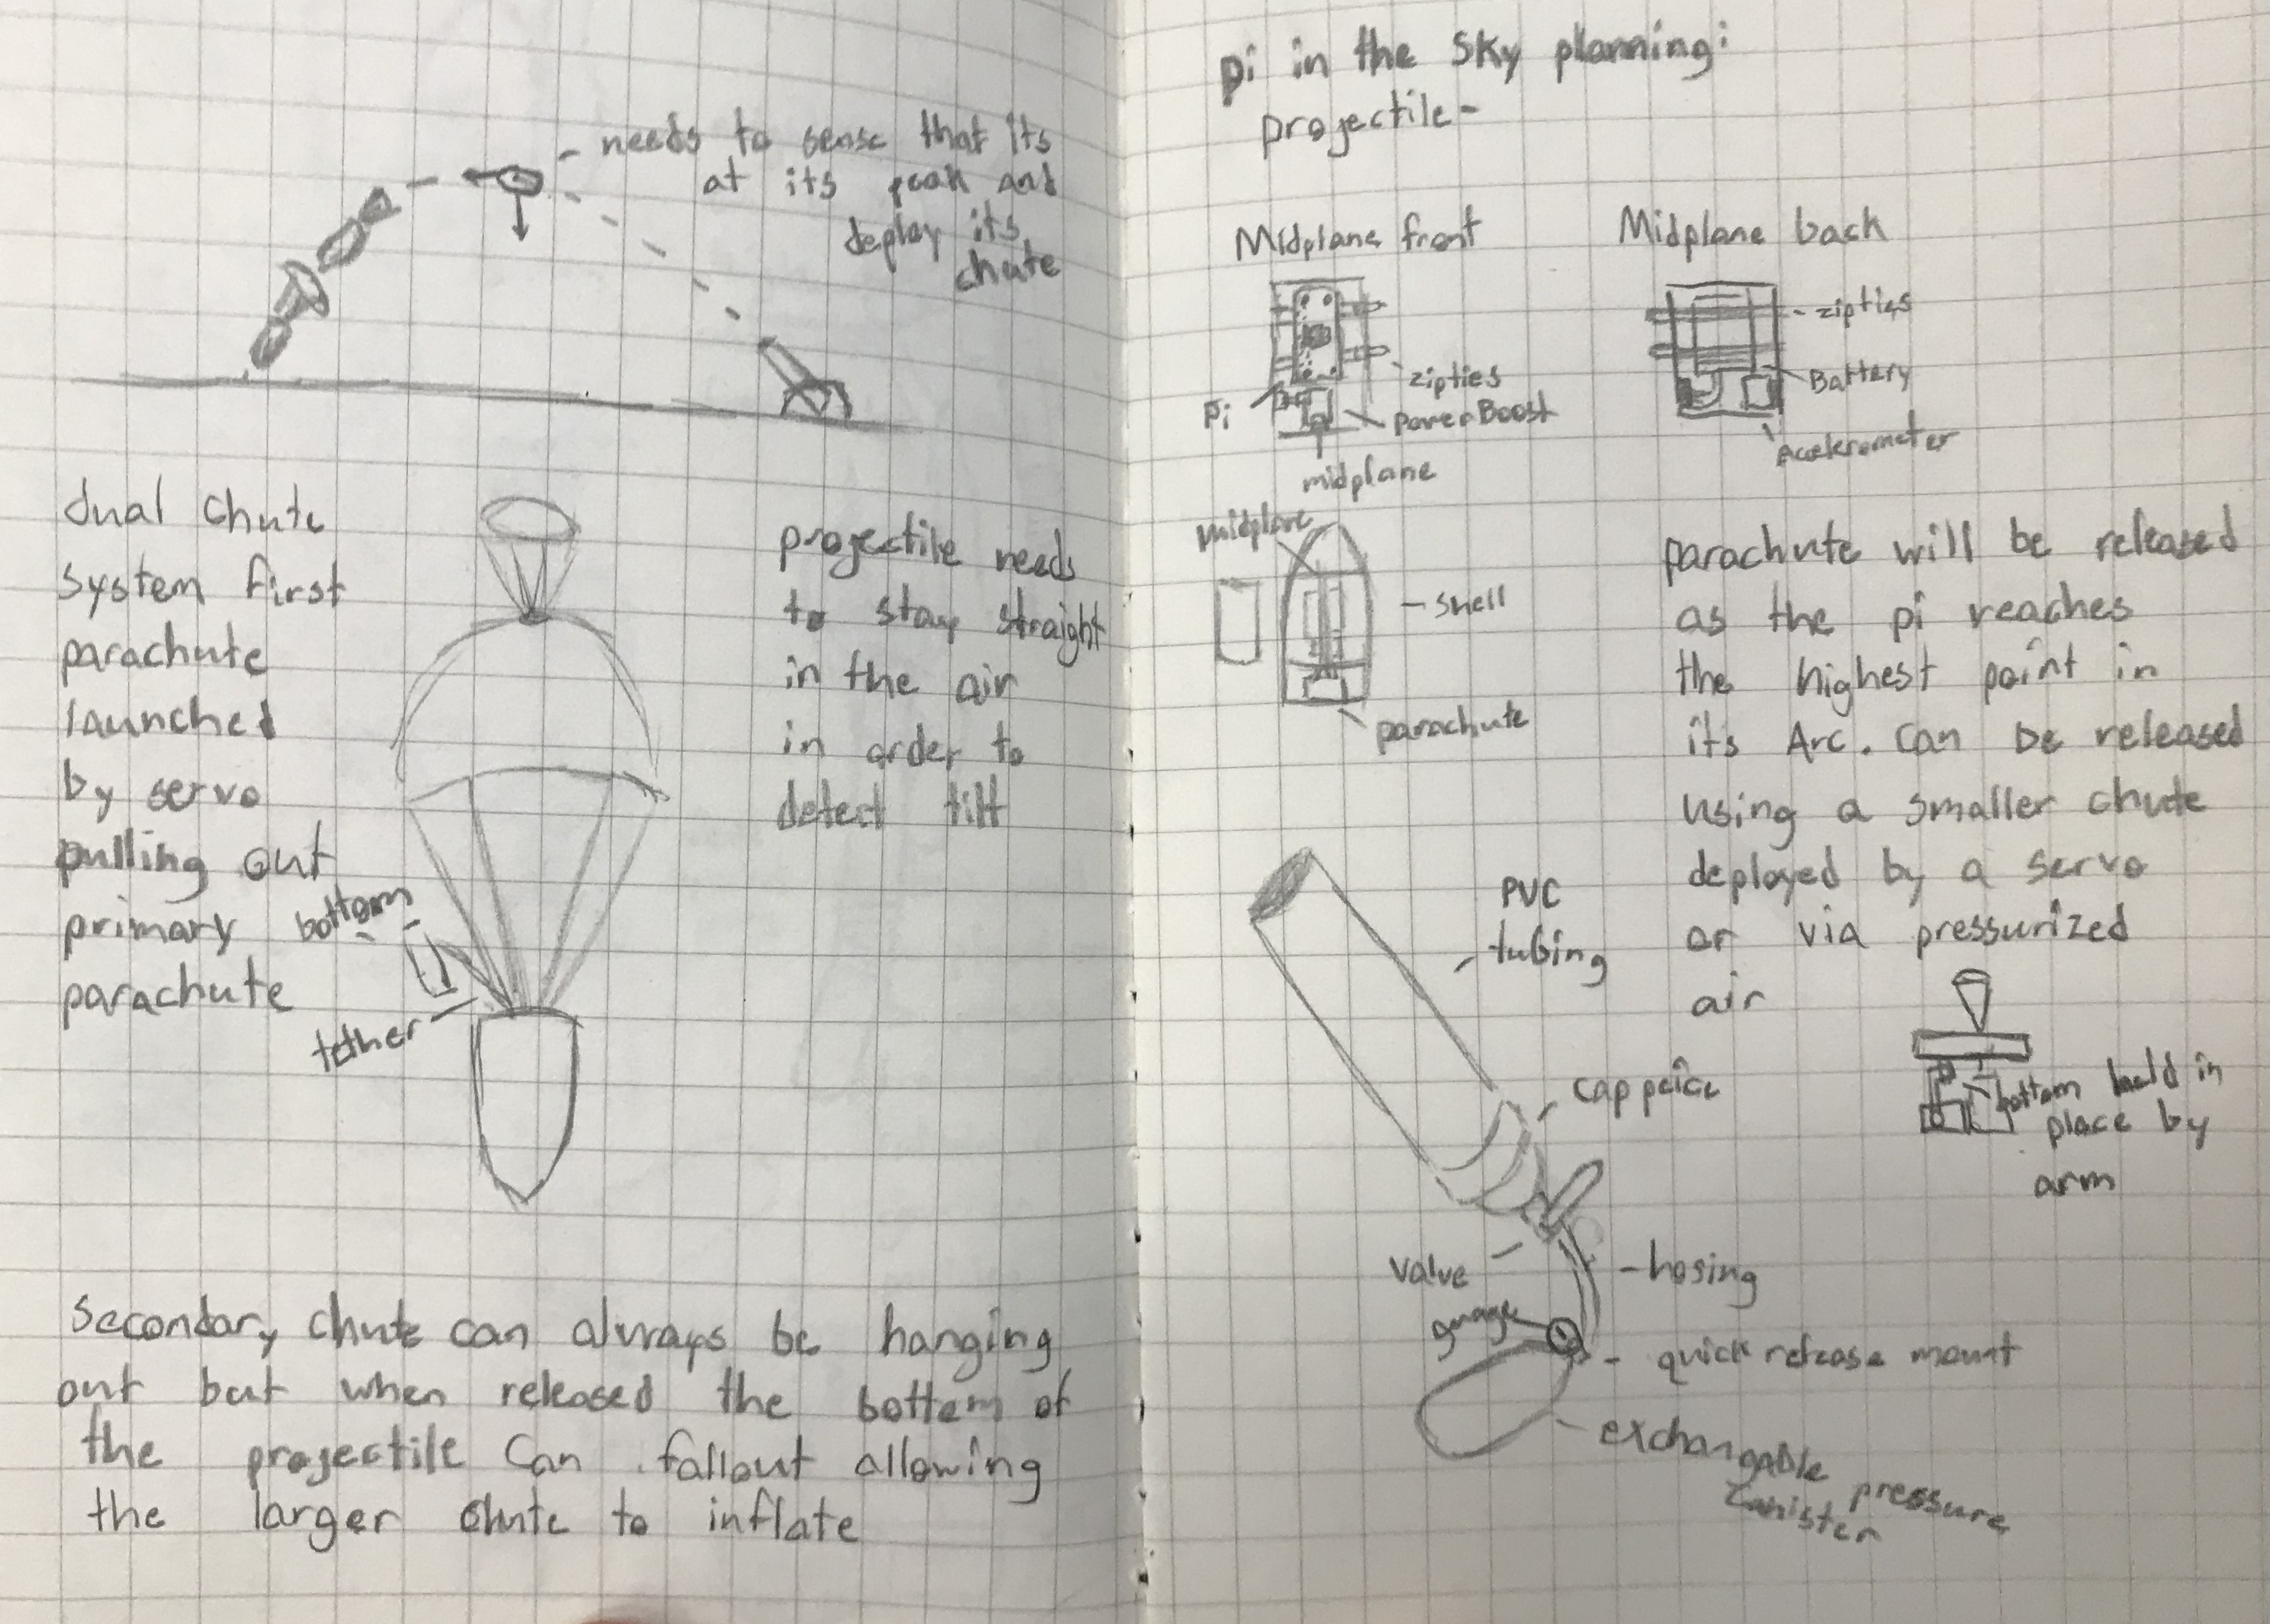 needs to sense that its
at its peak and
deploy its
chute
dual chute
system first
parachute
launched
by servo
pulling out
primary
parachute
bottom
tether
projectile needs
to stay straight
in the air
in order to
detect tilt
Secondary chute can always be hanging
out but when released the bottom of
the projectile can fallout allowing
the larger chute to inflate
Pi in the Sky planning:
projectile-
Midplane front
Pi
zipties
PowerBoost
midplane
Midplane back
zipties
Battery
Accelerometer
midplane
shell
parachute
parachute will be released
as the pi reaches
the highest point in
its Arc. Can be released
using a smaller chute
deployed by a servo
or via pressurized
air
bottom held in
place by
arm
PVC
tubing
cap peice
valve
hosing
guage
quick release mount
exchangable pressure
canister